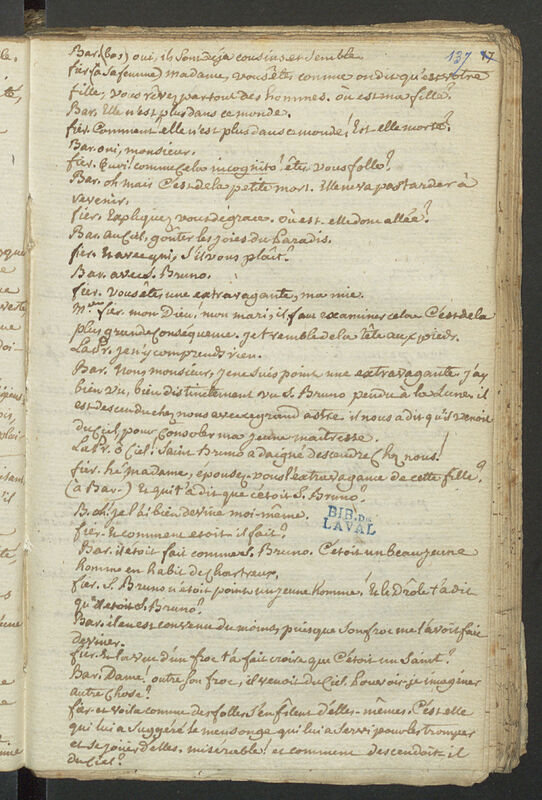 137 87
Bar. (bas) oui, ils sont déja cousins ensemble
fier. (à sa femme) madame, vous êtes, comme on dit qu'est votre
fille, vous rêvez partout des hommes. où est ma fille?
Bar. Elle n'est plus dans ce monde.
fier. Comment elle n'est plus dans ce monde! Est-elle morte?
Bar. oui, monsieur.
fier. oui! comme cela incognito! êtes vous folle?
Bar. oh mais c'est de la petite mort. Elle ne va pas tarder à
revenir.
fier. Expliquez vous de grace. où est-elle donc allée?
Bar. au Ciel, goûter les joies du Paradis.
fier. Et avec qui, s'il vous plaît?
Bar. avec S. Bruno.
fier. Vous êtes une extravagante, ma mie.
Me. fier. mon Dieu, mon mari, il faut examiner cela. C'est de la
plus grande conséquence. je tremble de la tête aux pieds.
La Pr. je n'y comprends rien.
Bar. Non, monsieur, je ne suis point une extravagante. j'ay
bien vu, bien distinctement vu S. Bruno pendu à la Lune. il
est descendu chez nous avec ce grand astre. il nous a dit qu'il venoit
du Ciel pour consoler ma jeune maitresse.
La Pr. ô Ciel! Saint Bruno a daigné descendre chez nous!
fier. hé madame, épousez-vous l'extravagance de cette fille?
(à Bar.) Et qui t'a dit que c'étoit S. Bruno.
B. oh! je l'ai bien deviné moi-même.
fier. Et comment etoit il fait?
Bar. il étoit fait comme S. Bruno. C'étoit un beau jeune
homme en habit de Chartreux.
fier. S. Bruno n'étoit point un jeune homme! Et le Drôle t'a dit
qu'il étoit S. Bruno?
Bar. il en est convenu du moins, puisque son froc me l'avoit fait
deviner.
fier. Et la vue d'un froc t'a fait croire que c'étoit un Saint?
Bar. Dame, outre son froc, il venoit du Ciel. Pouvoir-je imaginer
autre chose?
fier. et voila comme des folles s'enfilent d'elles-mêmes. C'est elle
qui lui a suggéré le mensonge qui lui a servi pour les tromper
et se jouer d'elles. misérable! et comment descendoit-il
du Ciel?
BIB. DE
LAVAL